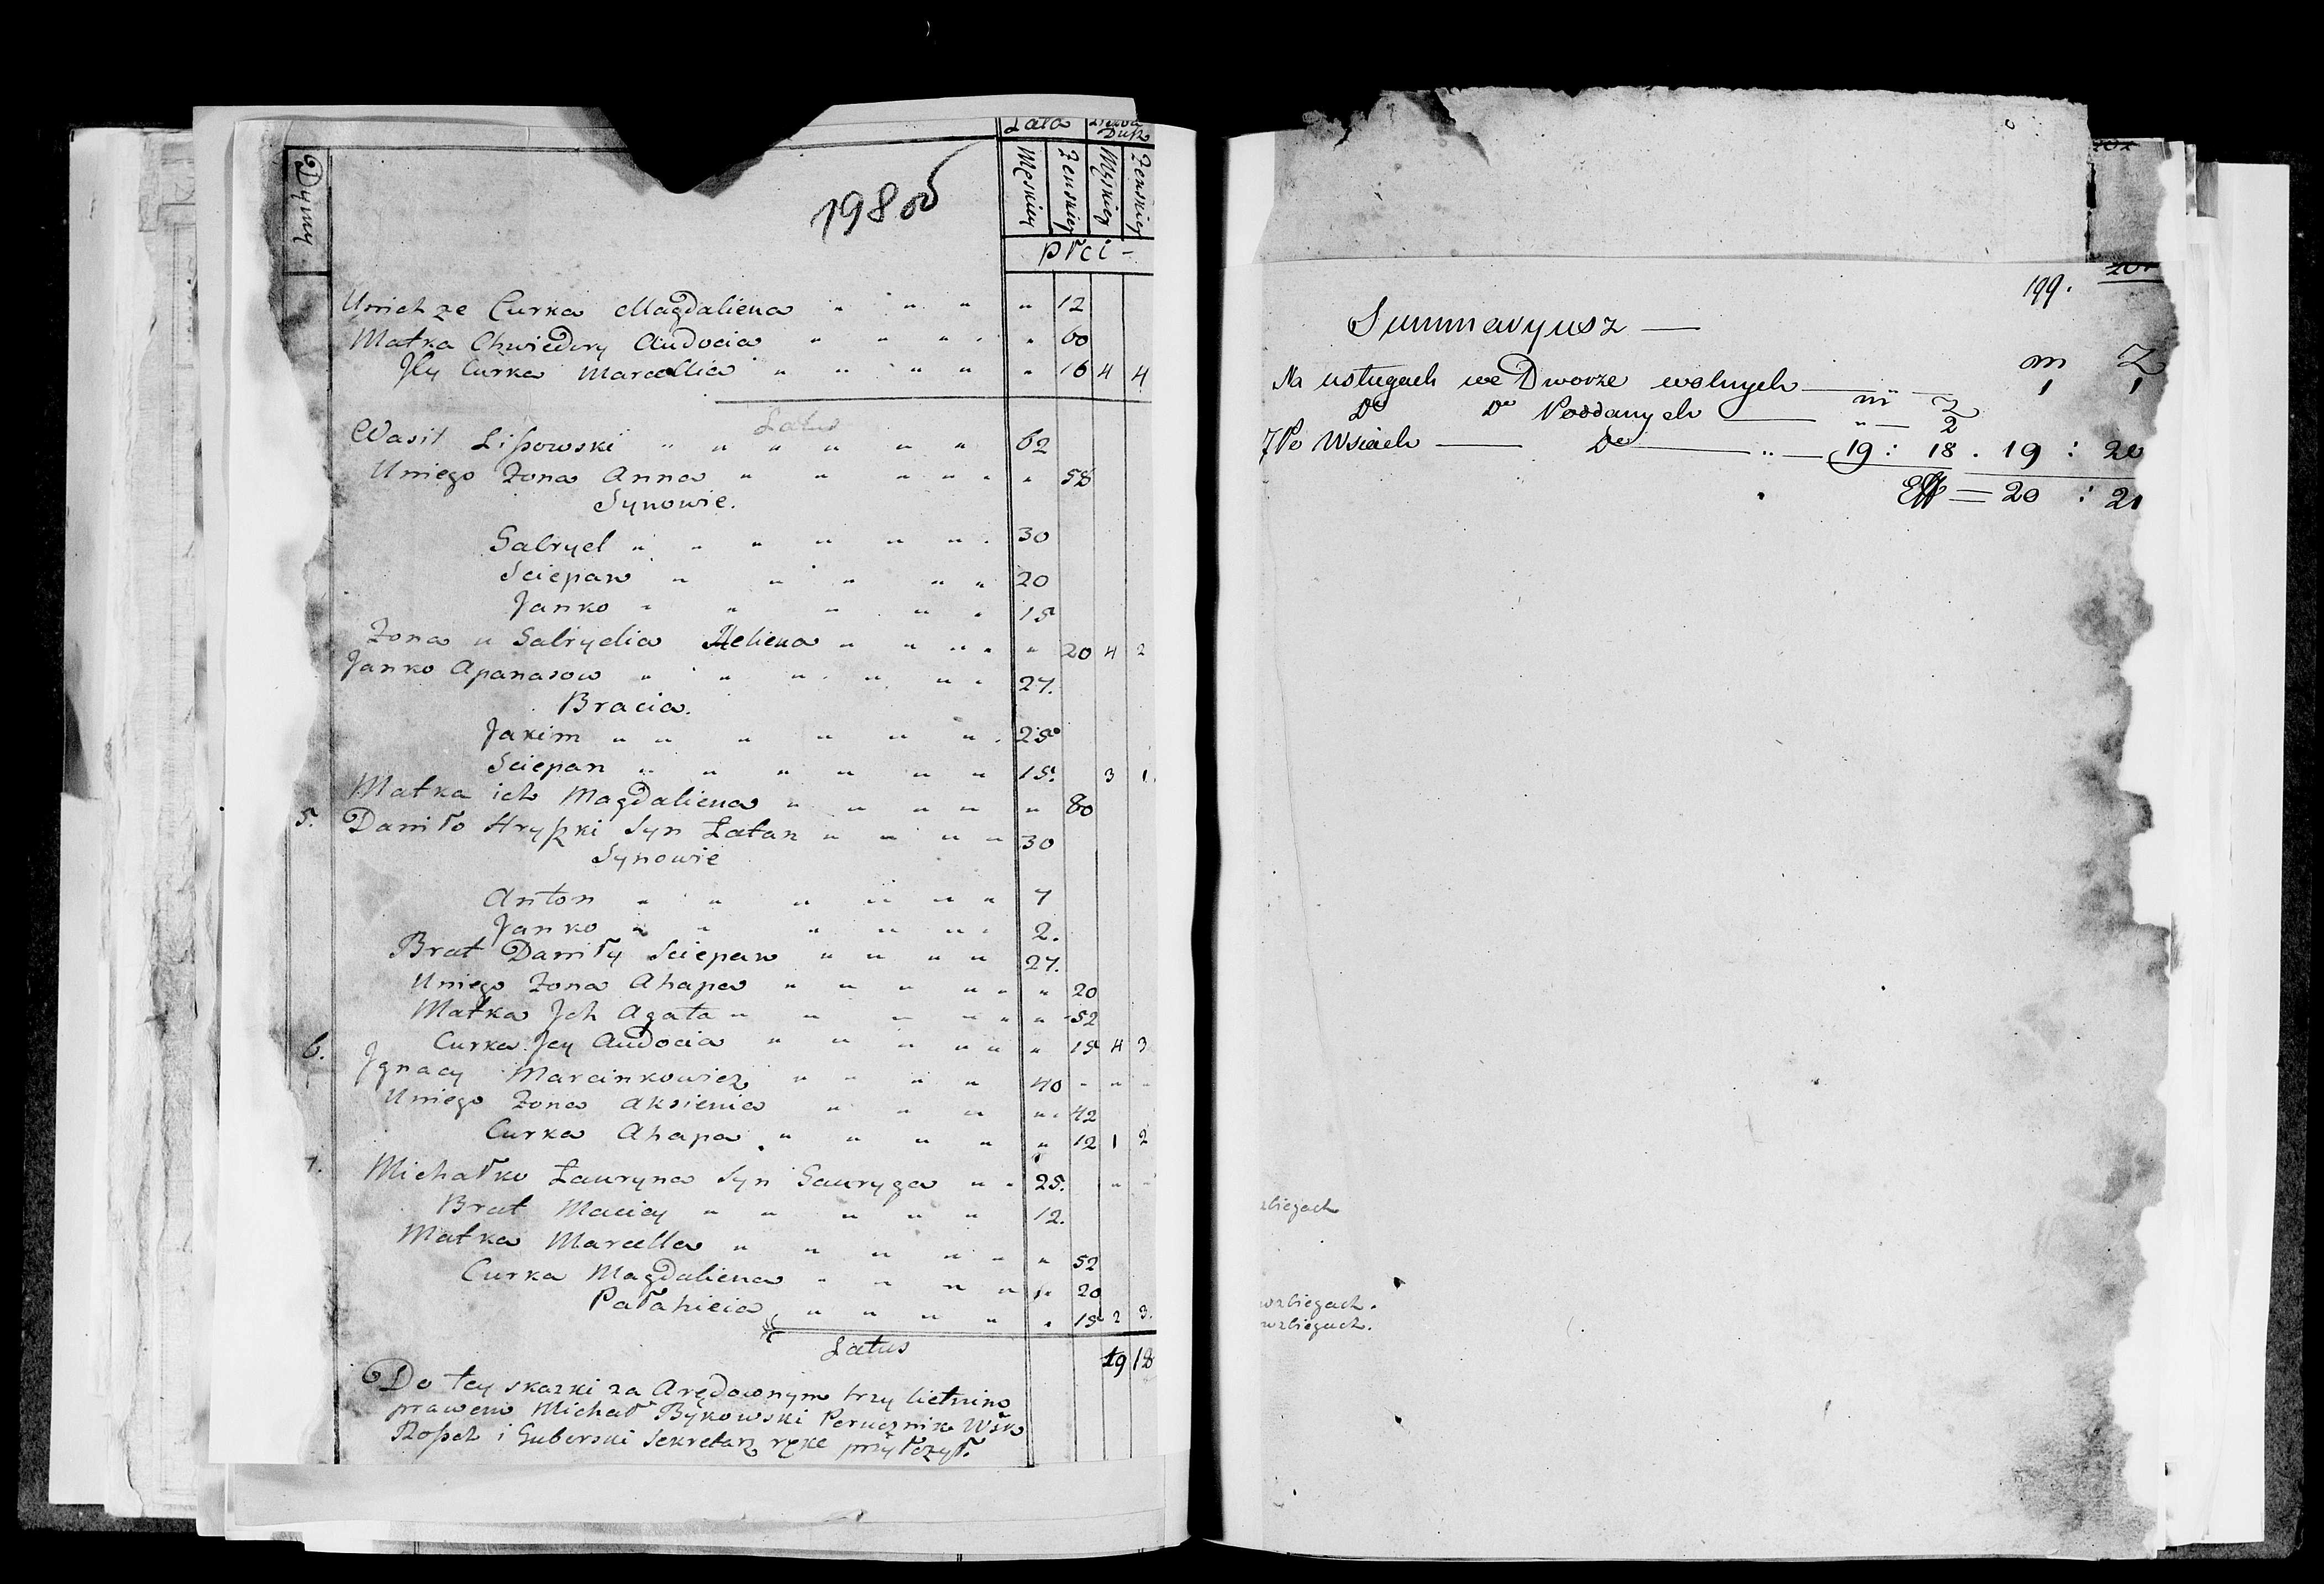 Lata
Liczba Dusz
Dymy
Męskiey
Żenskiey
Męskiey
Żenskiey
płci -
198 об
Unich ze Curka Magdaliena " " " " 12
Matka Chwiedory Audocia " " " " " 60
Jey Curka Marcellia " " " " " 16 4 4
Latus
Wasil Lißowski " " " " " " 62
Uniego Zona Anna " " " " " " 58
Synowie.
Gabryel " " " " " " 30
Sciepan " " " " " 20
Janko " " " " " 15
Zona u Gabryelia Heliena " " " " " 20 4 2
Janko Apanasow " " " " " " 27.
Bracia.
Jakim " " " " " " 25
Sciepan " " " " " " 15. 3 1.
Matka ich Magdaliena " " " " " 80
5. Daniło Hryßki Syn Łatan " " " " 30
Synowie
Anton " " " " " " 7
Janko " " " " " " 2.
Brat Daniły Sciepan " " " " 27.
Uniego Zona Ahapa " " " " " " 20
Matka Jch Agata " " " " " " 52
6. Curka Jey Audocia " " " " " " 15 4 3
Jgnacy Marcinkowicz " " " " 40 - " -
Uniego Zona Aksienia " " " " 42
Curka Ahapa " " " " " 12 1 2
7. Michałko Ławryna Syn Gauryga " " 25. " "
Brat Maciey " " " " " 12.
Matka Marcella " " " " " " 52
Curka Magdaliena " " " " " 20
Pałahieia " " " " " 15 2 3.
Latus 19 18
Do tey skazki za Arędownym trzy lietnim
prawem Michał Bykowski Porucznik Wsk
Roßch i Guberski Sekretarz rękę przyłozył.
199.
Summaryusz —
m Z
Na usługach we Dworze wolnych — " — 1 1
m Z
Do Do Poddanych — " — 2
7 Po Wsiach — Do — " — 19 : 18 . 19 : 20
Eff = 20 : 21
zbiegach
wzbiegach.
wzbiegach.